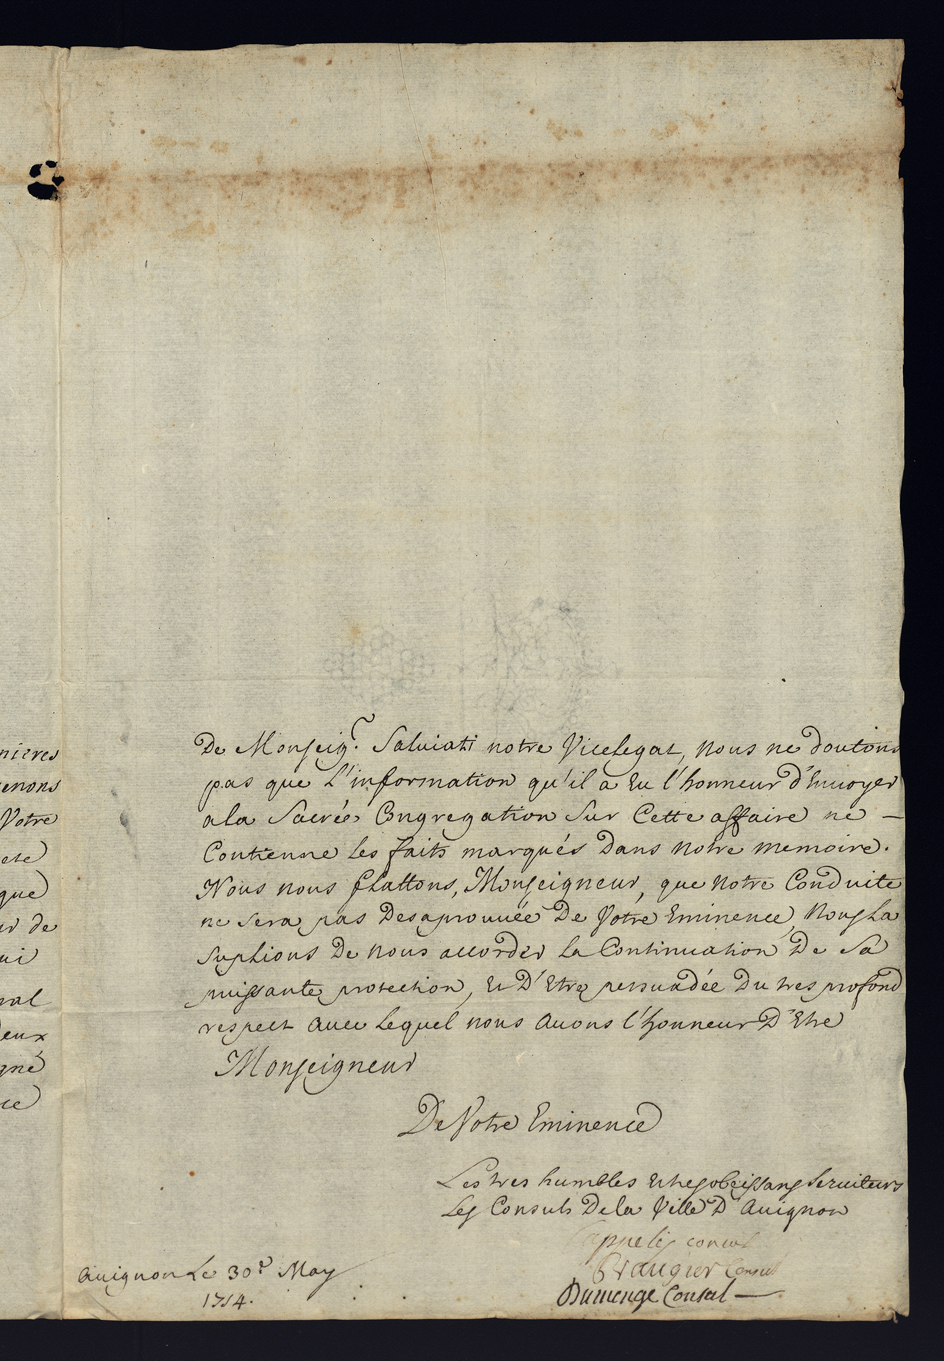 nieres
enons
Votre
ete
que
ur de
ui
ral
eux
gné
ce
De Monseigr. Salviati notre Vicelegat, nous ne doutons
pas que L'information qu'il a Eu l'honneur d'Envoyer
a la Sacrée Congregation Sur Cette affaire ne —
Contienne les faits marqués Dans notre memoire.
Nous nous flattons, Monseigneur, que notre Conduite
ne Sera pas Desaprouuée De Votre Eminence, Nous La
Suplions De nous accorder La Continuation De Sa
puissante protection, Et D'Etre persuadée Du tres profond
respect auec Lequel nous auons l'honneur D'Etre
Monseigneur
De Votre Eminence
Les tres humbles et tres obeissans Seruiteurs
Les Consuls De la Ville D'Auignon
consul
Consul
Dumenge Consul —
Auignon Le 30e May
1714.